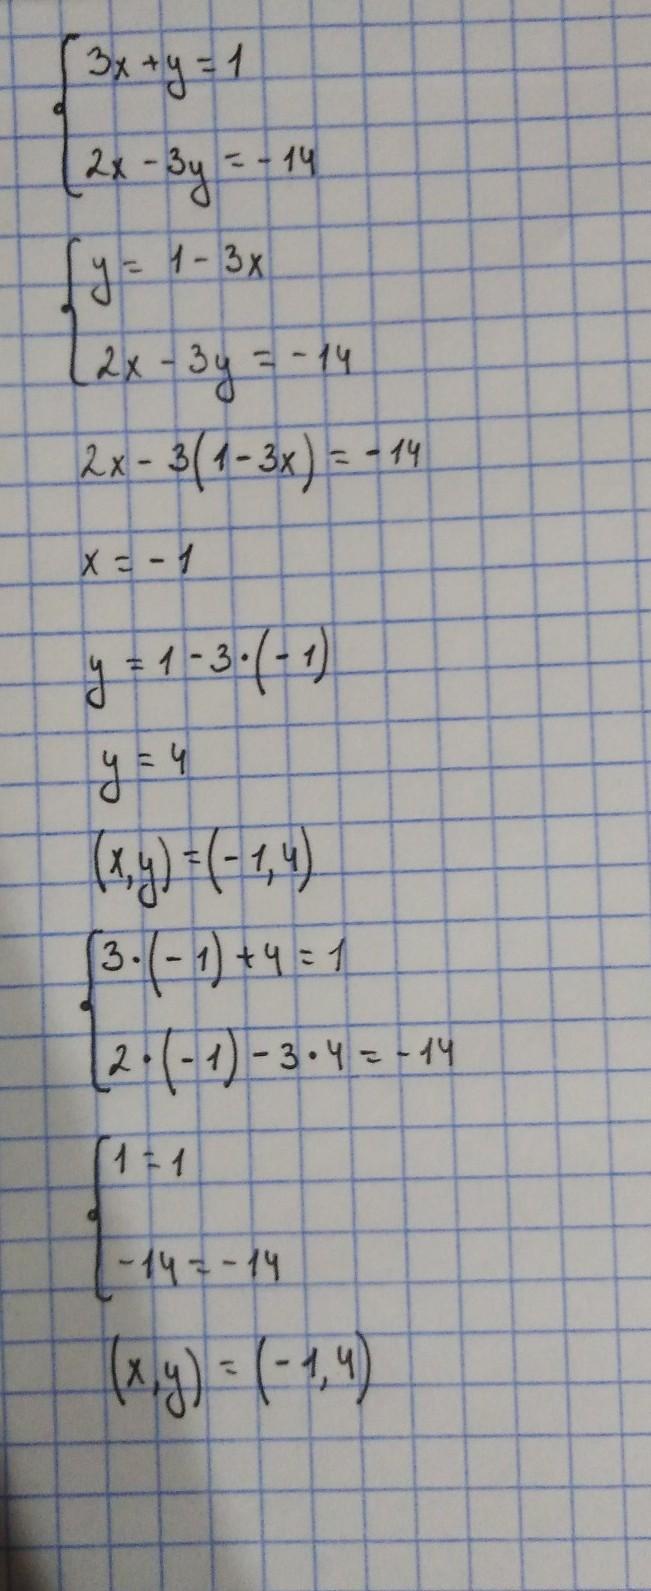 3x + y = 1
2x - 3y = - 14
y = 1 - 3x
2x - 3y = - 14
2x - 3(1 - 3x) = - 14
x = - 1
y = 1 - 3·(- 1)
y = 4
(x,y) = (- 1, 4)
3·(- 1) + 4 = 1
2·(- 1) - 3·4 = - 14
1 = 1
- 14 = - 14
(x,y) = (- 1, 4)